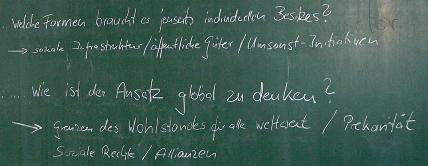 Welche Formen braucht es jenseits individuellen Besitzes?
→ soziale Infrastruktur/öffentliche Güter/Umsonst-Initiativen
... Wie ist der Ansatz global zu denken?
→ Grenzen des Wohlstandes für alle weltweit / Prekarität
Soziale Rechte / Allianzen